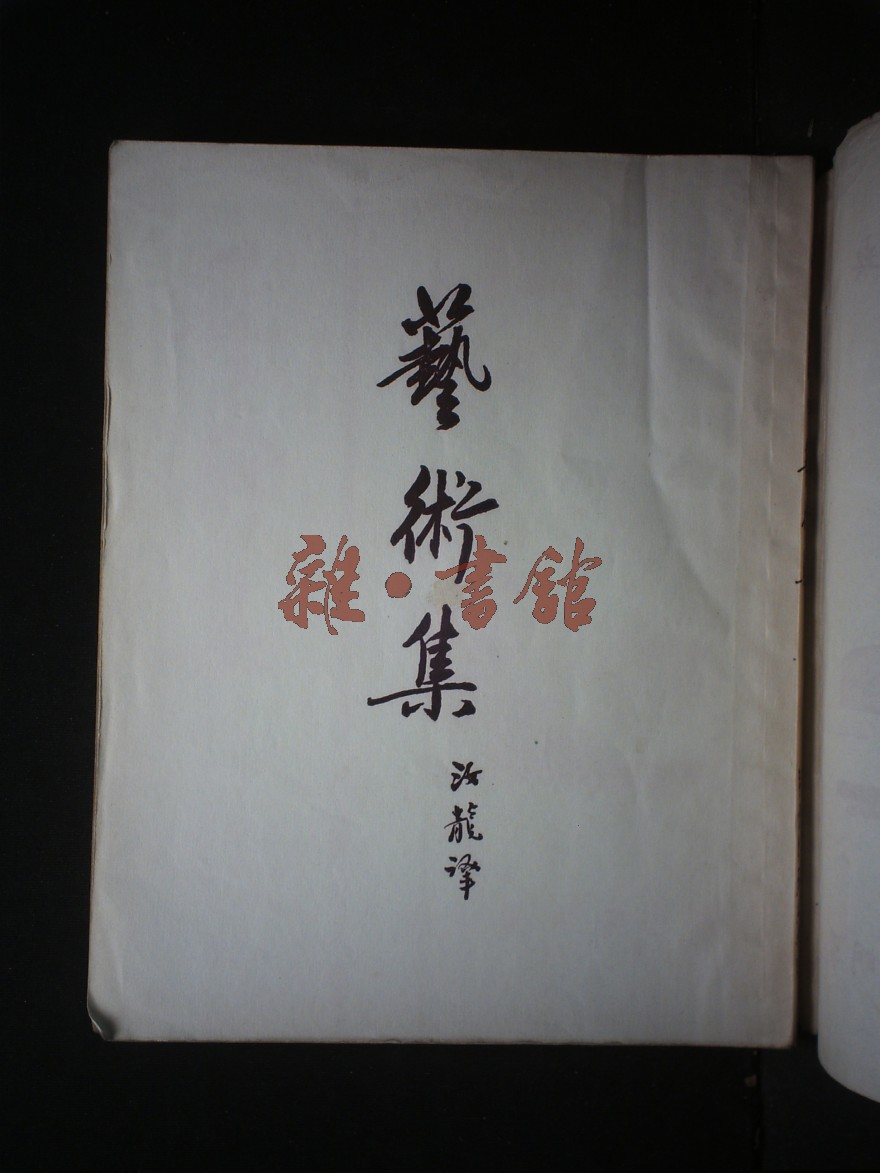 藝術集
汝龍譯
雜·書館